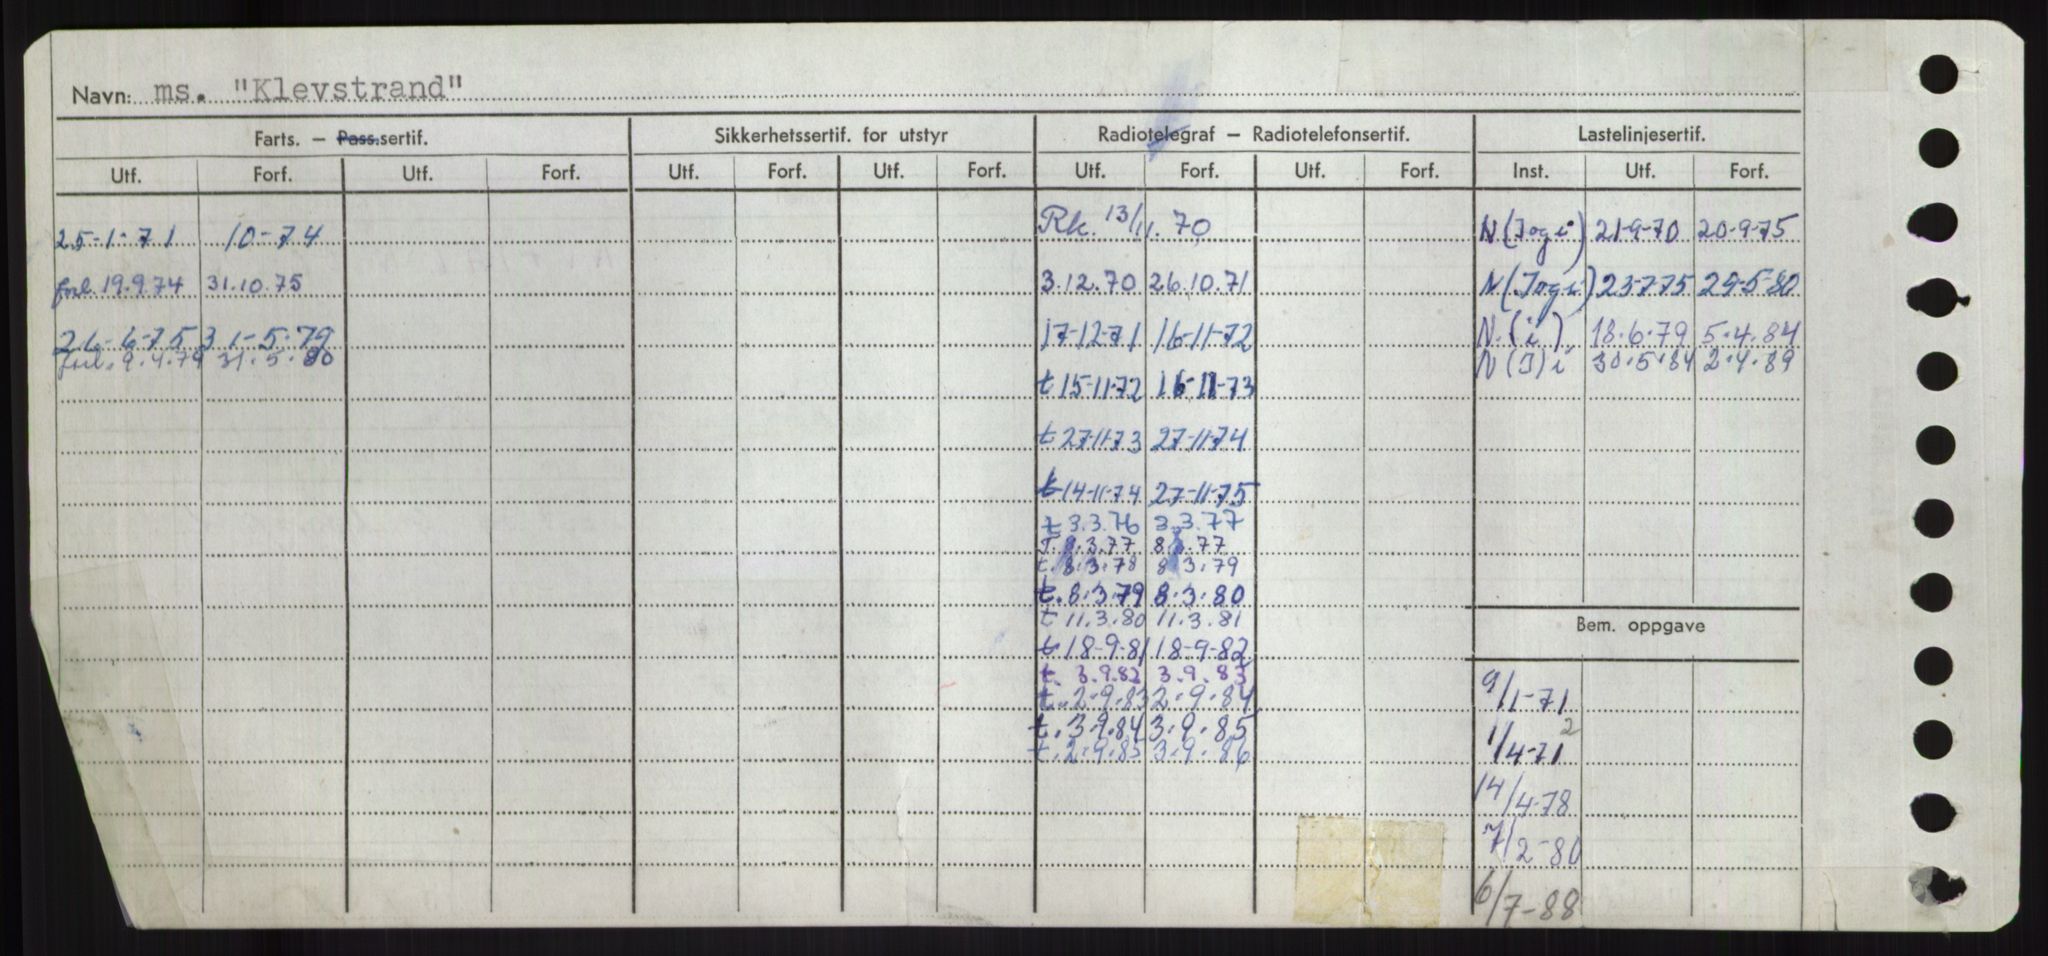 Navn: ms. "Klevstrand"
Farts. — Pass.sertif. Sikkerhetssertif. for utstyr Radiotelegraf — Radiotelefonsertif. Lastelinjesertif.
Utf. Forf. Utf. Forf. Utf. Forf. Utf. Forf. Utf. Forf. Utf. Forf. Inst. Utf. Forf.
25-1-71 10-74 Rk. 13/11.70 N 21-9-70 20-9-75
forl. 19.9.74 31.10.75 3.12.70 26.10.71 N 23-7-75 29-5-80
26-6-75 31-5-79 17-12-71 16-11-72 N.(i) 18.6.79 5.4.84
forl. 9.4.79 31.5.80 N(I)i 30.5.84 2.4.89
t 15-11-72 16-11-73
t 27-11-73 27-11-74
t 14-11-74 27-11-75
t 3.3.76 3.3.77
T. 8.3.77 8.3.77
t. 8.3.78 8.3.79
t. 8.3.79 8.3.80
t 11.3.80 11.3.81
Bem. oppgave
t 18-9-81 18-9-82
t. 3.9.82 3.9.83 9/1-71
t. 2.9.83 2.9.84
t. 3.9.84 3.9.85 1/4-71 2
t. 2.9.85 3.9.86
14/4-78
7/2-80
6/7-88